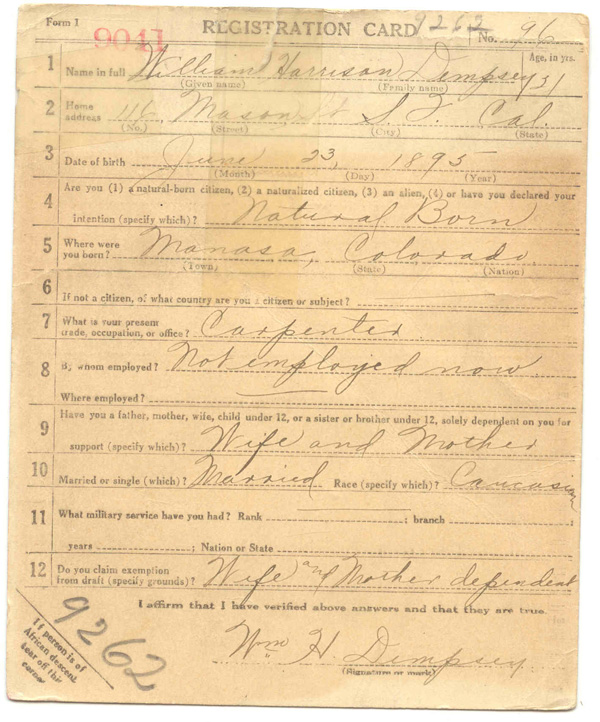 Form 1 REGISTRATION CARD 9262 No. 96
9041
1 Name in full William Harrison Dempsey Age, in yrs.
(Given name) (Family name)
2 Home address 116 Mason St S. F. Cal.
(No.) (Street) (City) (State)
3 Date of birth June 23, 1895
(Month) (Day) (Year)
4 Are you (1) a natural-born citizen, (2) a naturalized citizen, (3) an alien, (4) or have you declared your
intention (specify which)? Natural Born
5 Where were you born? Manasa, Colorado,
(Town) (State) (Nation)
6 If not a citizen, of what country are you a citizen or subject?
7 What is your present trade, occupation, or office? Carpenter
8 By whom employed? Not employed now.
Where employed?
9 Have you a father, mother, wife, child under 12, or a sister or brother under 12, solely dependent on you for
support (specify which)? Wife and Mother
10 Married or single (which)? Married Race (specify which)? Caucasian
11 What military service have you had? Rank ; branch ;
years ; Nation or State
12 Do you claim exemption from draft (specify grounds)? Wife and Mother dependent
I affirm that I have verified above answers and that they are true.
9262
Wm H Dempsey
(Signature or mark)
If person is of
African descent,
tear off this
corner